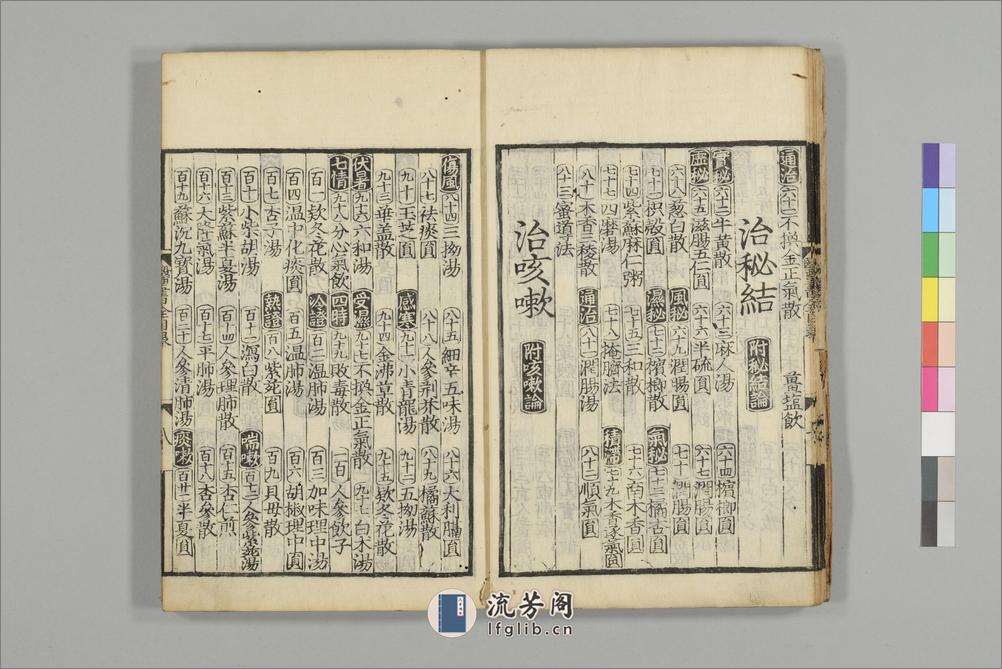 通治 六十二 不換金正氣散 薑塩飲
治秘結 附秘結論
實秘 六十二 牛黄散 六十三 麻人湯 六十四 檳榔圓
虚秘 六十五 滋腸五仁圓 六十六 半硫圓 六十七 潤腸圓
六十八 葱白散 風秘 六十九 潤腸圓 七十 潤腸圓
七十一 枳殻圓 濕秘 七十二 檳榔散 氣秘 七十三 橘杏圓
七十四 紫蘇麻仁粥 七十五 三和散 七十六 南木香圓
七十七 四磨湯 七十八 掩臍法 積滯 七十九 木香逐氣圓
八十 木香三稜散 通治 八十一 潤腸湯 八十二 順氣圓
八十三 蜜道法
治咳嗽 附咳嗽論
傷風 八十四 三拗湯 八十五 細辛五味湯 八十六 大利膈圓
八十七 祛痰圓 八十八 人參荆芥散 八十九 橘蘇散
九十 玉芝圓 感寒 九十一 小青龍湯 九十二 五拗湯
九十三 華盖散 九十四 金沸草散 九十五 欵冬花散
伏暑 九十六 六和湯 受濕 九十七 不換金正氣散 九十七 白朮湯
七情 九十八 分心氣飲 四時 九十九 敗毒散 一百 人參飲子
百一 欵冬花散 冷證 百二 温肺湯 百三 加味理中湯
百四 温中化痰圓 百五 温肺湯 百六 胡椒理中圓
百七 古子湯 熱證 百八 紫菀圓 百九 貝母散
百十 小柴胡湯 百十一 瀉白散 喘嗽 百十二 人參紫菀湯
百十三 紫蘇半夏湯 百十四 人參理肺散 百十五 杏仁煎
百十六 大降氣湯 百十七 平肺湯 百十八 杏參散
百十九 蘇沉九寶湯 百二十 人參清肺湯 痰嗽 百廿一 半夏圓
流芳阁
lfglib.cn